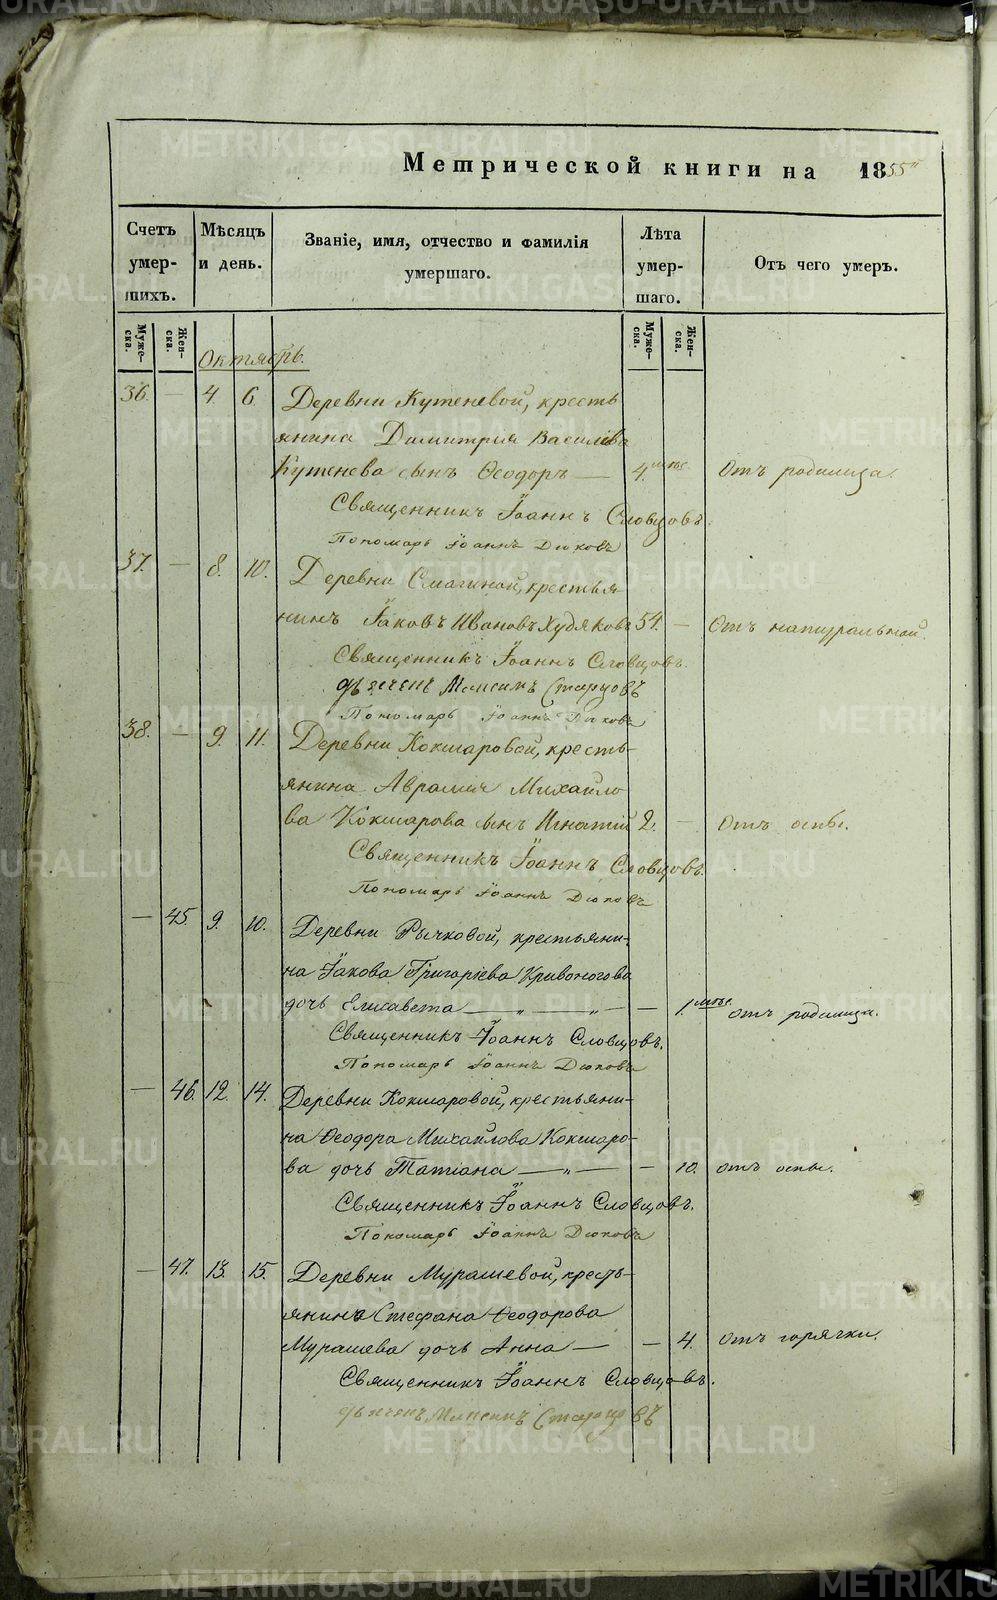 METRIKI.GASO-URAL.RU
Метрической книги на 1855й
Счетъ умер- шихъ.
Мѣсяцъ и день.
Званіе, имя, отчество и фамилія умершаго.
Лѣта умер- шаго.
Отъ чего умеръ.
Муже- ска.
Жен- ска.
Муже- ска.
Жен- ска.
Октябрь.
36. — 4. 6. Деревни Кутеневой, кресть
янина Димитрія Василіева
Кутенева сынъ Ѳеодоръ — 4. мѣс. Отъ родимца.
Священникъ Іоаннъ Словцовъ.
Пономарь Іоаннъ Дюковъ
37. — 8. 10. Деревни Смагиной, крестья
нинъ Іаковъ Ивановъ Худяковъ 54. — Отъ натуральной.
Священникъ Іоаннъ Словцовъ.
дьячекъ Максимъ Старцовъ
Пономарь Іоаннъ Дюковъ
38. — 9. 11. Деревни Кокшаровой, кресть-
янина Аврамія Михайло
ва Кокшарова сынъ Игнатій 2. — Отъ оспы.
Священникъ Іоаннъ Словцовъ.
Пономарь Іоаннъ Дюковъ
— 45. 9. 10. Деревни Рычковой, крестьяни-
на Іакова Григоріева Кривоногова
дочь Елисавета — „ — „ — — 1. мѣс. отъ родимца.
Священникъ Іоаннъ Словцовъ.
Пономарь Іоаннъ Дюковъ
— 46. 12. 14. Деревни Кокшаровой, крестьяни-
на Ѳеодора Михайлова Кокшаро-
ва дочь Татіана — „ — — 10. отъ оспы.
Священникъ Іоаннъ Словцовъ.
Пономарь Іоаннъ Дюковъ
— 47. 13. 15. Деревни Мурашевой, кресть-
янина Стефана Ѳеодорова
Мурашева дочь Анна — — 4. Отъ горячки.
Священникъ Іоаннъ Словцовъ.
дьячекъ Максимъ Старцовъ